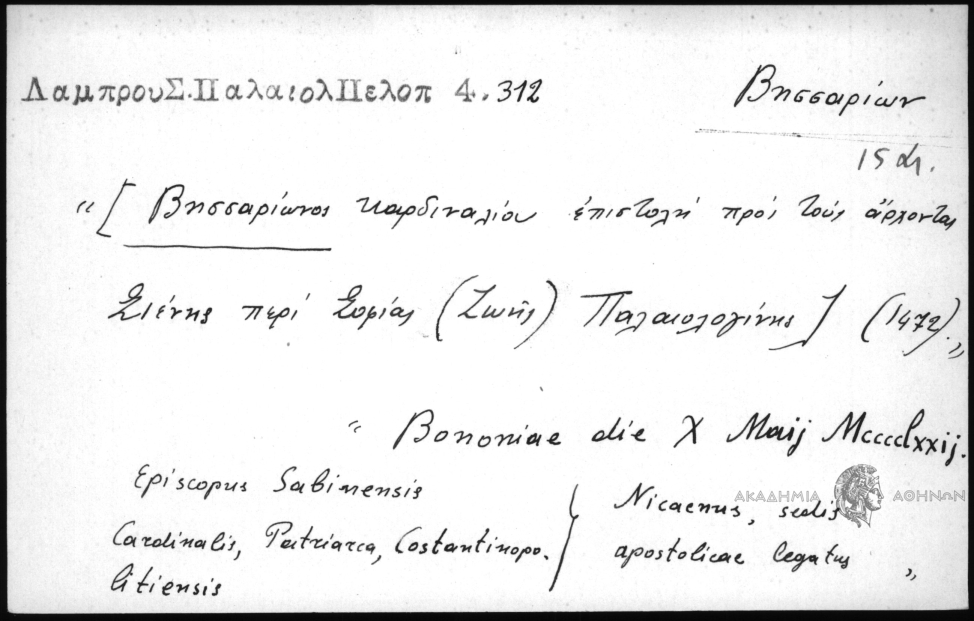 ΛαμπρουΣ.ΠαλαιολΠελοπ 4.312
Βησσαρίων
15 αι.
“[ Βησσαρίωνος καρδιναλίου ἐπιστολή πρός τούς ἄρχοντας
Σιένης περί Σοφίας (Ζωῆς) Παλαιολογίνης] (1472).”
“ Bononiae die X Maij Mcccclxxij.
Episcopus Sabinensis
Cardinalis, Patriarca, Costantinopo-
litiensis
Nicaenus, sedis
apostolicae legatus ”
ΑΚΑΔΗΜΙΑ ΑΘΗΝΩΝ